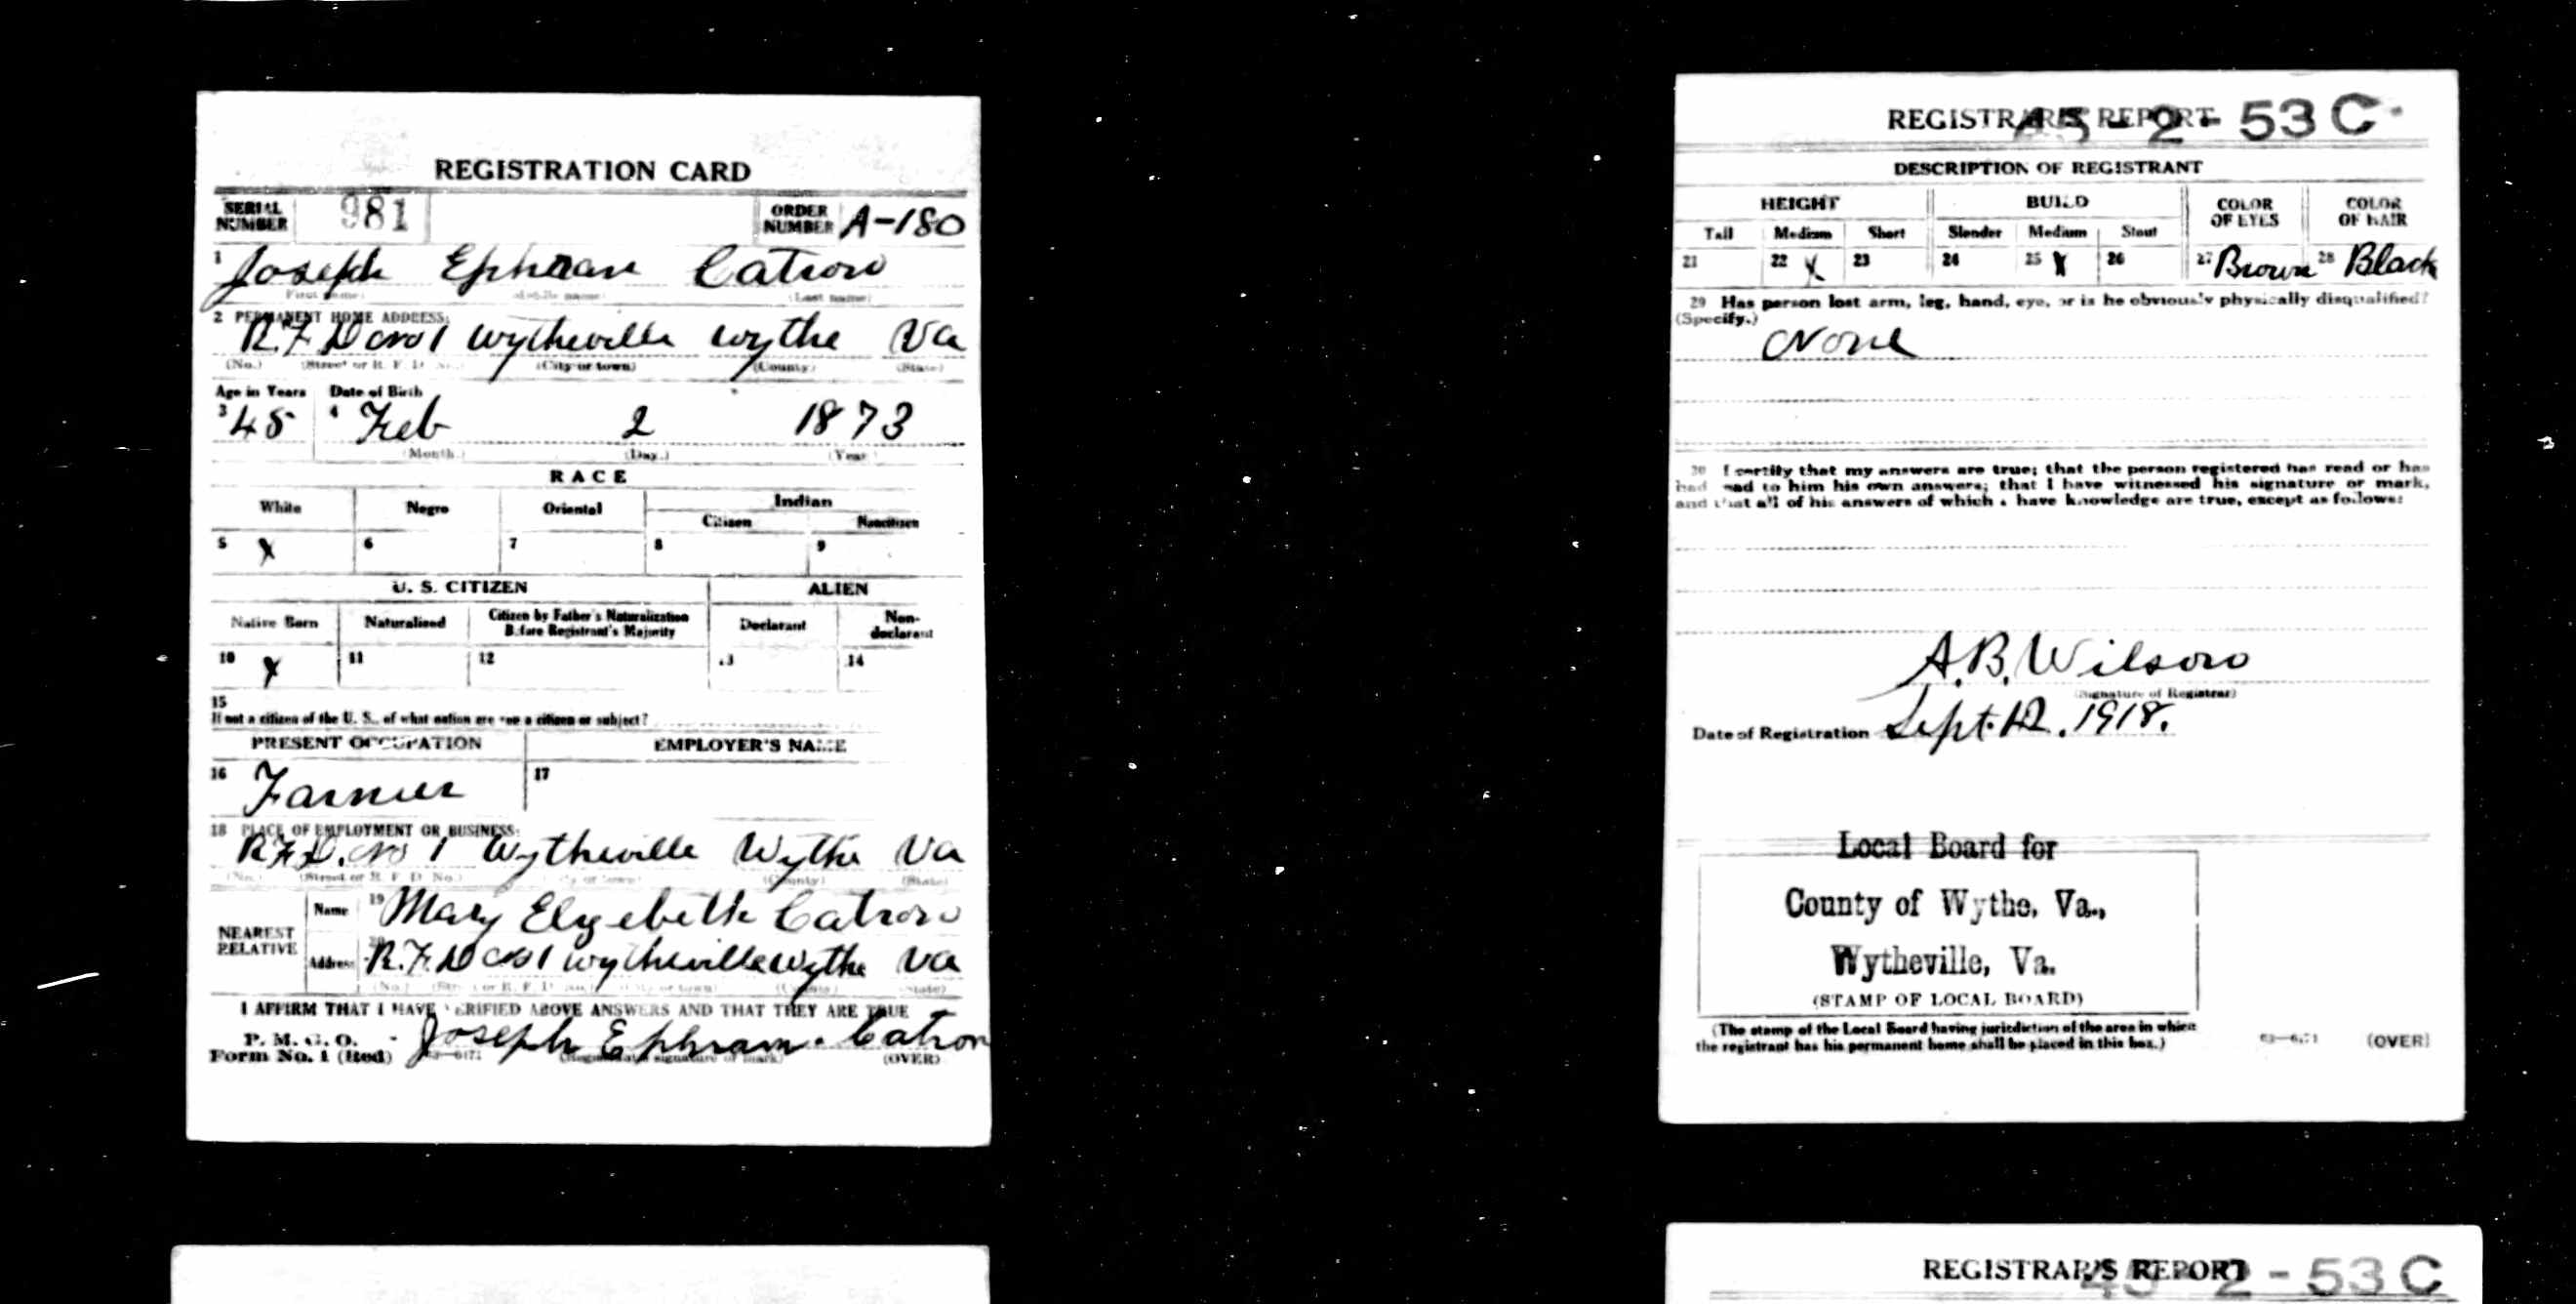 REGISTRATION CARD
SERIAL NUMBER 981 ORDER NUMBER A-180
1 Joseph Ephram Catron
(First name) (Middle name) (Last name)
2 PERMANENT HOME ADDRESS:
R.F.D No 1 Wytheville Wythe Va
(No.) (Street or R. F. D. No.) (City or town) (County) (State)
Age in Years Date of Birth
3 45 4 Feb 2 1873
(Month.) (Day.) (Year)
RACE
White Negro Oriental Indian
Citizen Noncitizen
5 X 6 7 8 9
U. S. CITIZEN ALIEN
Native Born Naturalized Citizen by Father's Naturalization Before Registrant's Majority Declarant Non-declarant
10 X 11 12 13 14
15
If not a citizen of the U. S., of what nation are you a citizen or subject?
PRESENT OCCUPATION EMPLOYER'S NAME
16 Farmer 17
18 PLACE OF EMPLOYMENT OR BUSINESS:
R.F.D. No 1 Wytheville Wythe Va
(No.) (Street or R. F. D. No.) (City or town) (County) (State)
NEAREST RELATIVE Name 19 Mary Elizebeth Catron
Address 20 R.F.D No 1 Wytheville Wythe Va
(No.) (Street or R. F. D. No.) (City or town) (County) (State)
I AFFIRM THAT I HAVE VERIFIED ABOVE ANSWERS AND THAT THEY ARE TRUE
P. M. G. O.
Form No. 1 (Red) Joseph Ephram. Catron
(Registrant's signature or mark) (OVER)
REGISTRAR'S REPORT 45-2-53 C
DESCRIPTION OF REGISTRANT
HEIGHT BUILD COLOR OF EYES COLOR OF HAIR
Tall Medium Short Slender Medium Stout
21 22 X 23 24 25 X 26 27 Brown 28 Black
29 Has person lost arm, leg, hand, eye, or is he obviously physically disqualified?
(Specify.)
None
30 I certify that my answers are true; that the person registered has read or has
had read to him his own answers; that I have witnessed his signature or mark,
and that all of his answers of which I have knowledge are true, except as follows:
A.B. Wilson
(Signature of Registrar)
Date of Registration Sept. 12. 1918.
Local Board for
County of Wythe, Va.,
Wytheville, Va.
(STAMP OF LOCAL BOARD)
(The stamp of the Local Board having jurisdiction of the area in which
the registrant has his permanent home shall be placed in this box.)
(OVER)
REGISTRAR'S REPORT 45-2-53 C